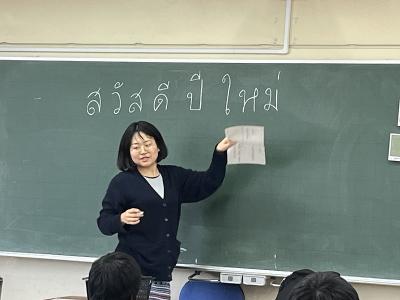 สวัสดี ปี ใหม่